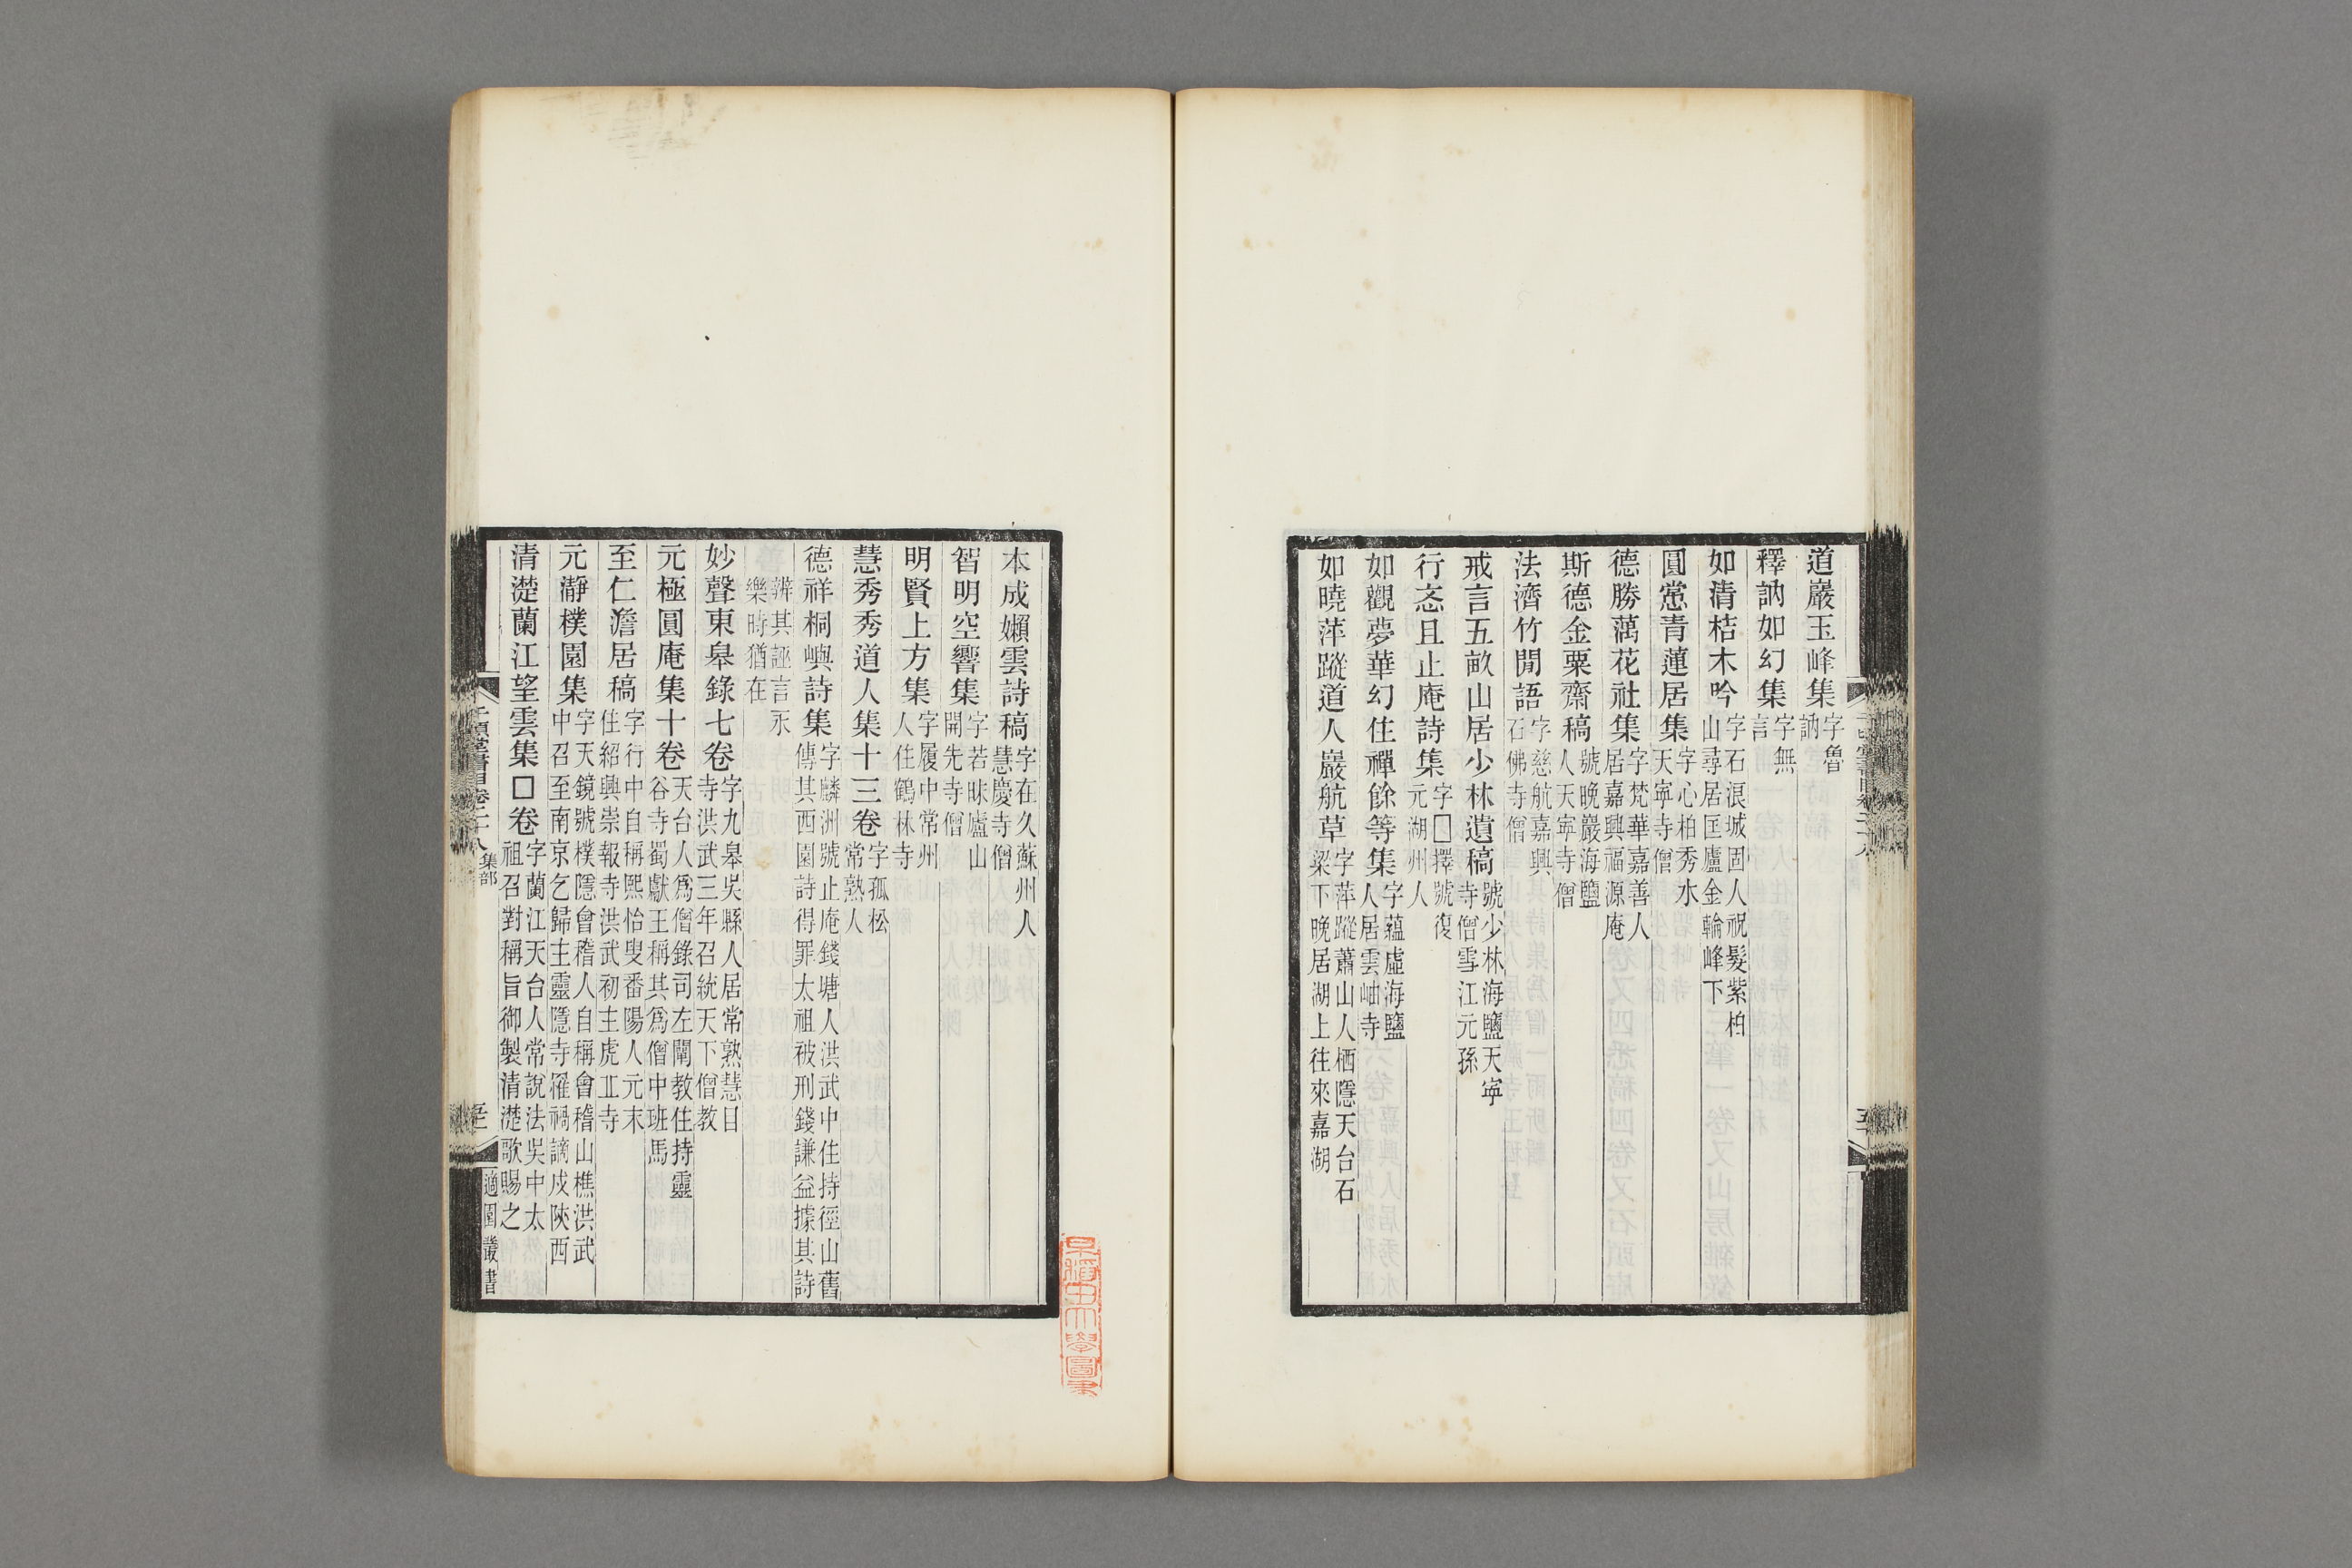 道巖玉峰集字魯
訥
釋訥如幻集字無
言
如清桔木吟字石浪城固人祝髮紫柏
山尋居匡廬金輪峰下
圓鬯青蓮居集字心柏秀水
天寧寺僧
德勝蕅花社集字梵華嘉善人
居嘉興福源庵
斯德金粟齋稿號晚巖海鹽
人天寧寺僧
法濟竹閒語字慈航嘉興
石佛寺僧
戒言五畝山居少林遺稿號少林海鹽天寧
寺僧雪江元孫
行忞且止庵詩集字□擇號復
元湖州人
如觀夢華幻住禪餘等集字蘊虛海鹽
人居雲岫寺
如曉萍蹤道人巖航草字萍蹤蕭山人栖隱天台石
梁下晚居湖上往來嘉湖
本成嬾雲詩稿字在久蘇州人
慧慶寺僧
智明空響集字若昧廬山
開先寺僧
明賢上方集字履中常州
人住鶴林寺
慧秀秀道人集十三卷字孤松
常熟人
德祥桐嶼詩集字麟洲號止庵錢塘人洪武中住持徑山舊
傳其西園詩得罪太祖被刑錢謙益據其詩
辨其誣言永
樂時猶在
妙聲東皋錄七卷字九皋吳縣人居常熟慧日
寺洪武三年召統天下僧教
元極圓庵集十卷天台人爲僧錄司左闡教住持靈
谷寺蜀獻王稱其爲僧中班馬
至仁澹居稿字行中自稱熙怡叟番陽人元末
住紹興崇報寺洪武初主虎丘寺
元瀞樸園集字天鏡號樸隱會稽人自稱會稽山樵洪武
中召至南京乞歸主靈隱寺罹禍謫戍陝西
清濋蘭江望雲集□卷字蘭江天台人常說法吳中太
祖召對稱旨御製清濋歌賜之
千頃堂書目卷二十八 集部
適園叢書